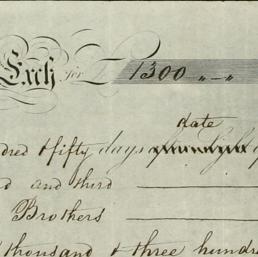 Exch for £1300 "—"
date
dred & fifty days
d and third
Brothers
thousand & three hundre